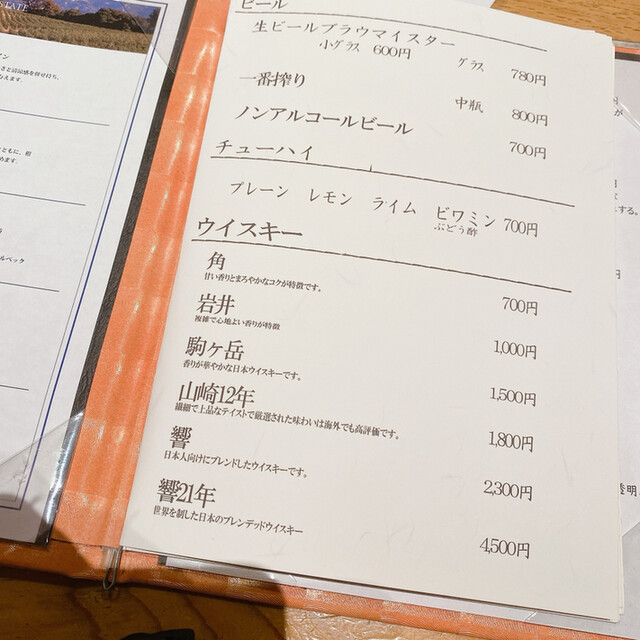 ビール
生ビールブラウマイスター
小グラス 600円 グラス 780円
一番搾り 中瓶 800円
ノンアルコールビール 700円
チューハイ
プレーン レモン ライム ビワミン 700円
ぶどう酢
ウイスキー
角 700円
甘い香りとまろやかなコクが特徴です。
岩井 1,000円
複雑で心地よい香りが特徴
駒ヶ岳 1,500円
香りが華やかな日本ウイスキーです。
山崎12年 1,800円
繊細で上品なテイストで厳選された味わいは海外でも高評価です。
響 2,300円
日本人向けにブレンドしたウイスキーです。
響21年 4,500円
世界を制した日本のブレンデッドウイスキー